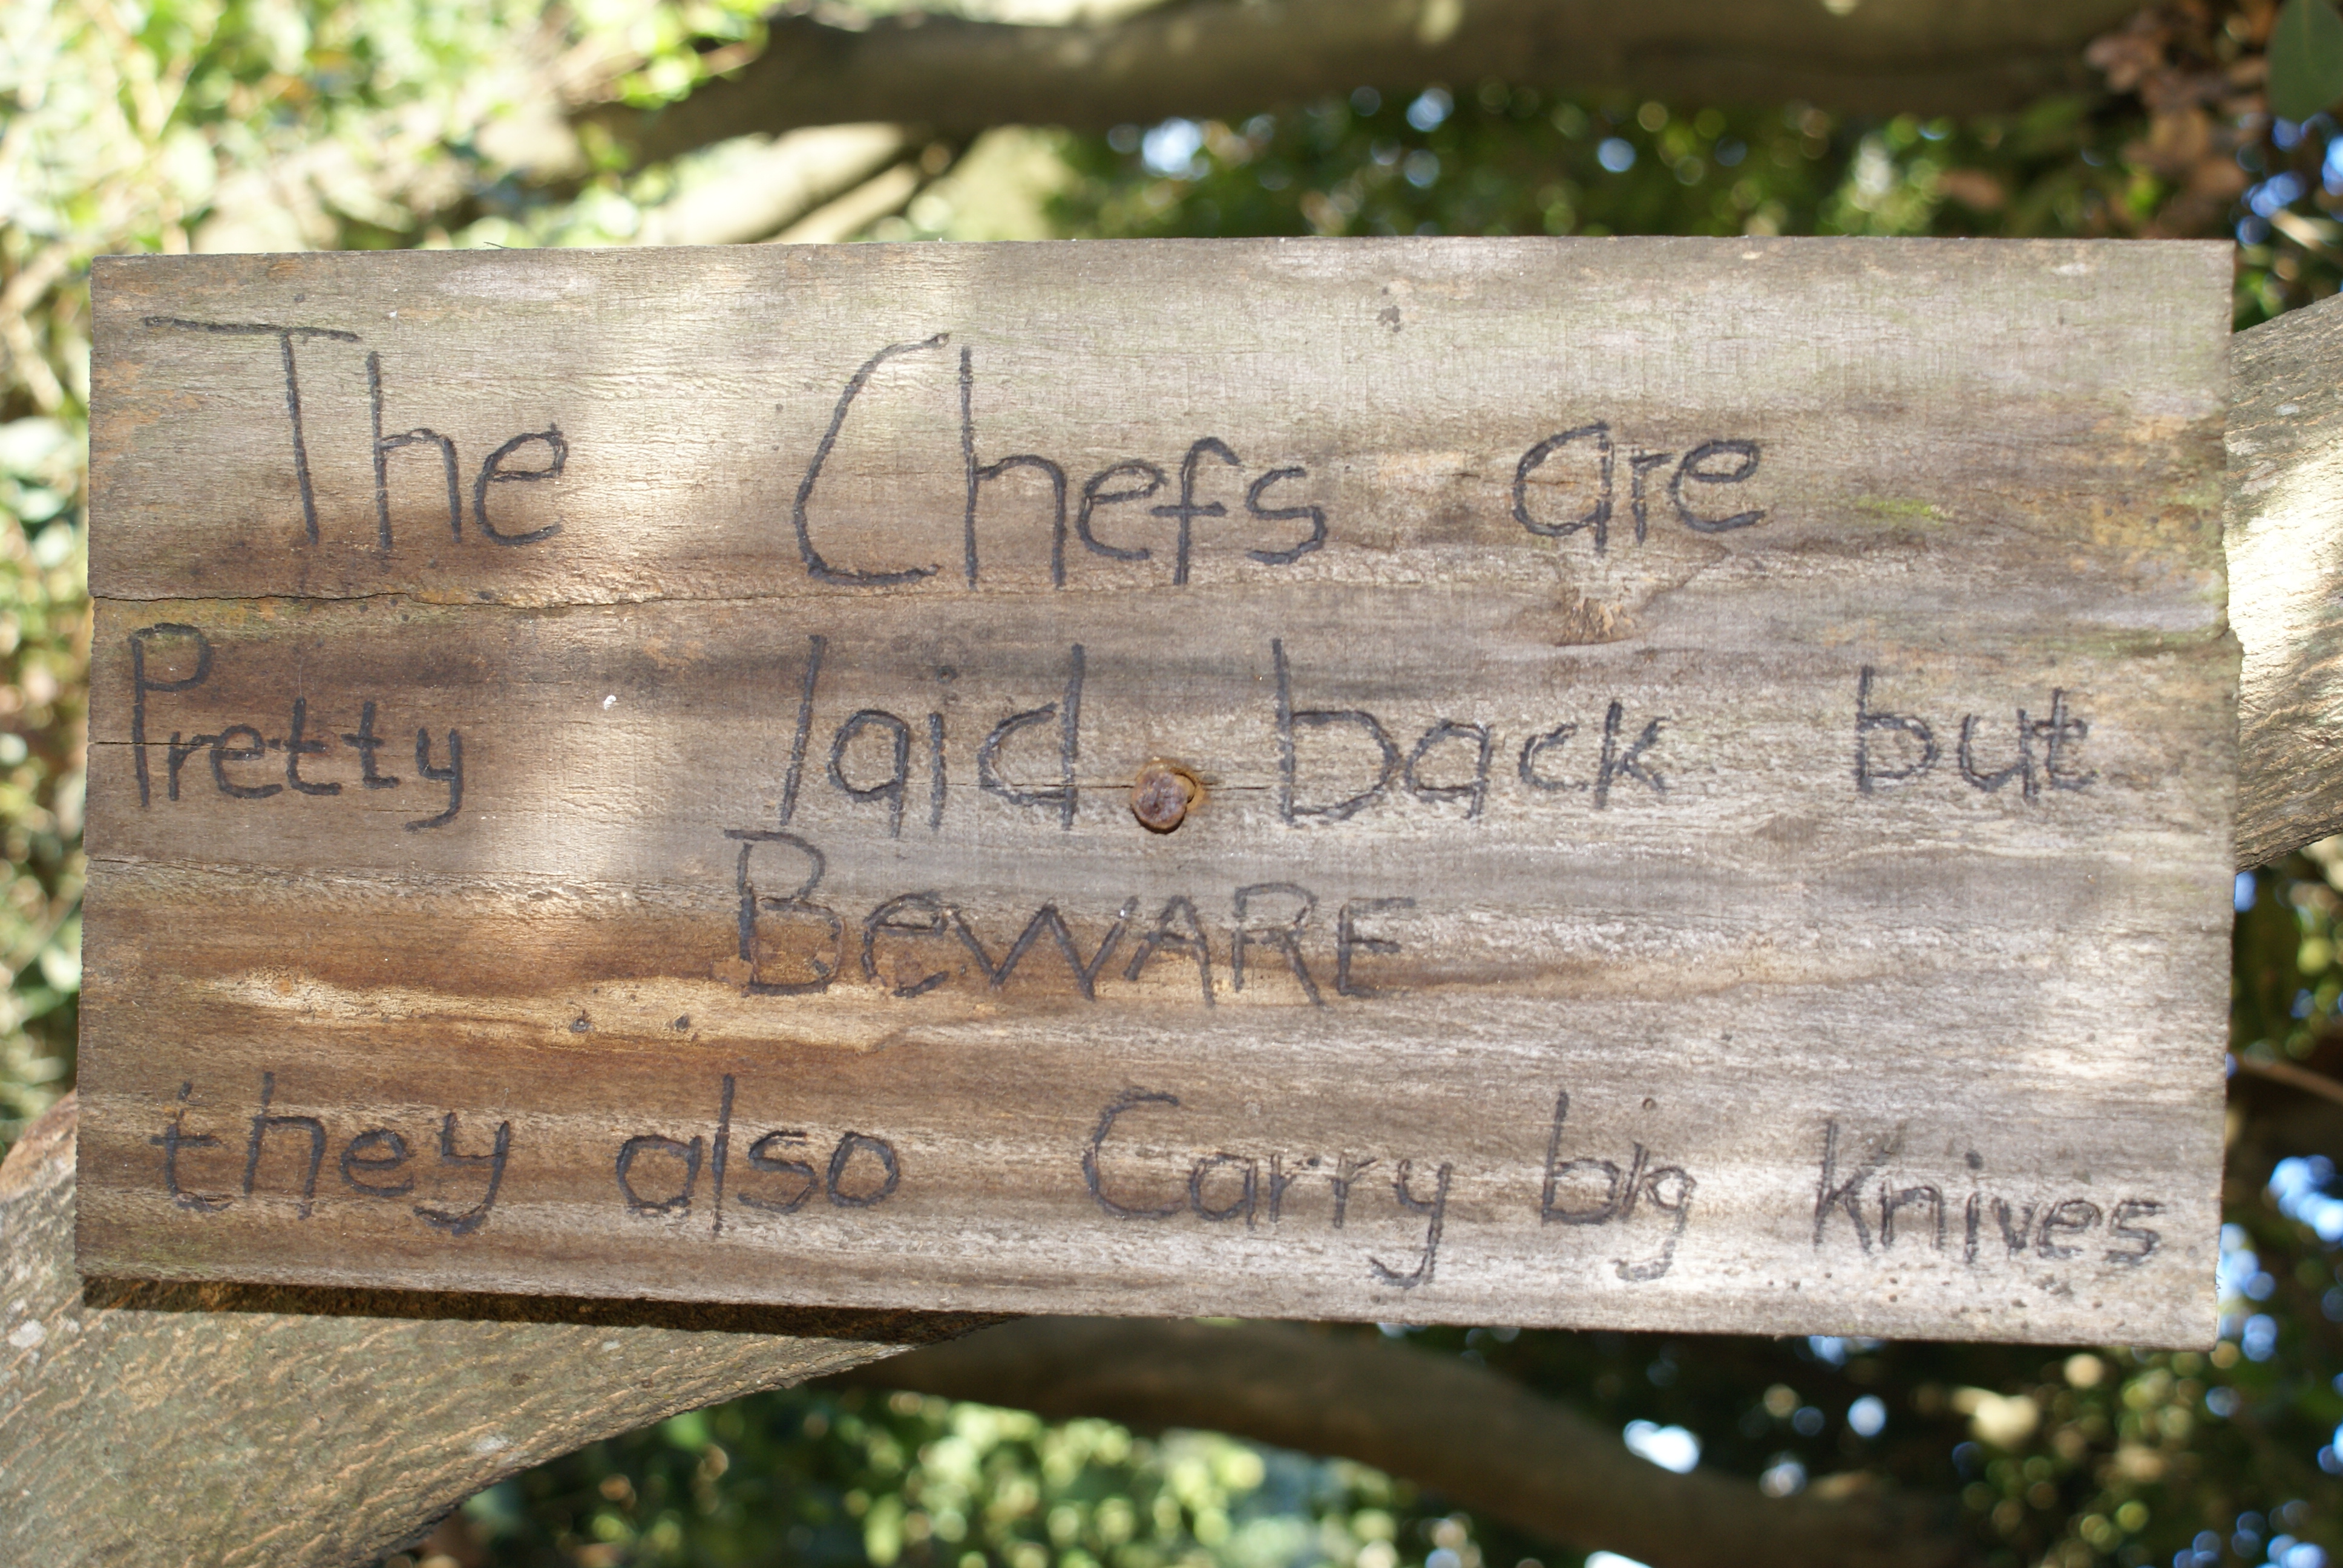 The Chefs are
Pretty laid back but
BeWARE
they also Carry big Knives